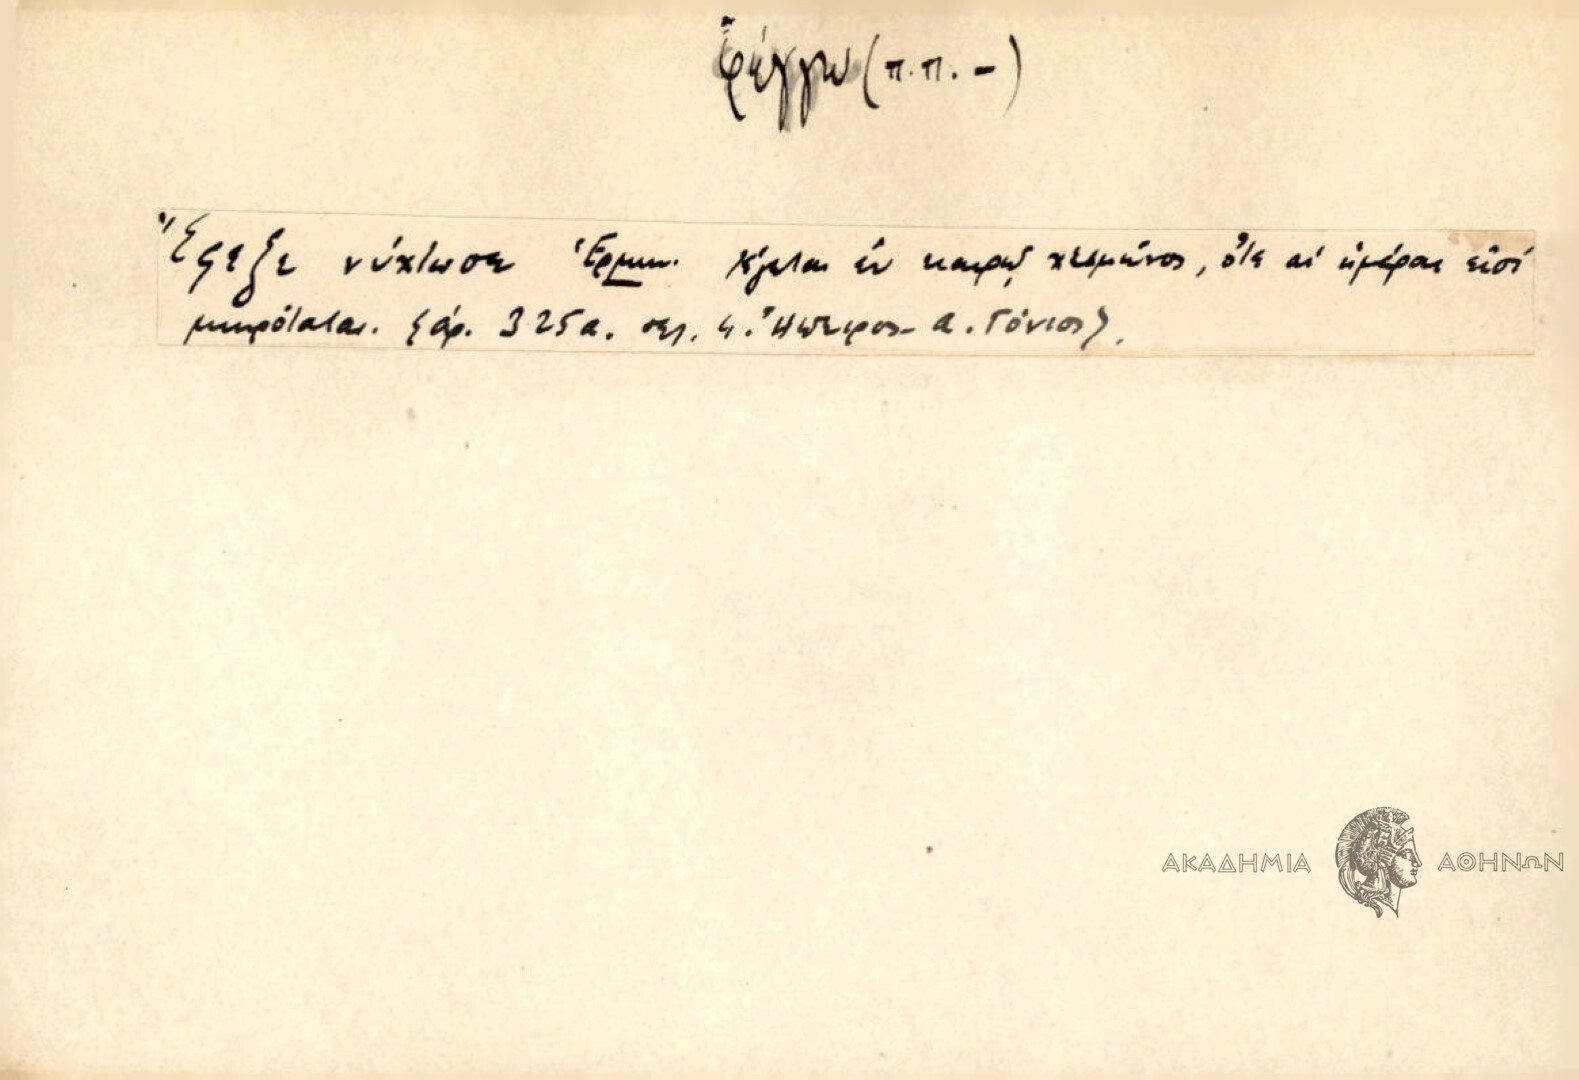 φέγγω (π.π. -)
Ἔφεξε νύχτωσε Ἑρμην. λέγεται ἐν καιρῷ χειμῶνος, ὅτε αἱ ἡμέραι εἰσί
μικρόταται. ἀρ. 325α. σελ. 4. Ἤπειρος - Α. Γόνιος).
ΑΚΑΔΗΜΙΑ ΑΘΗΝΩΝ